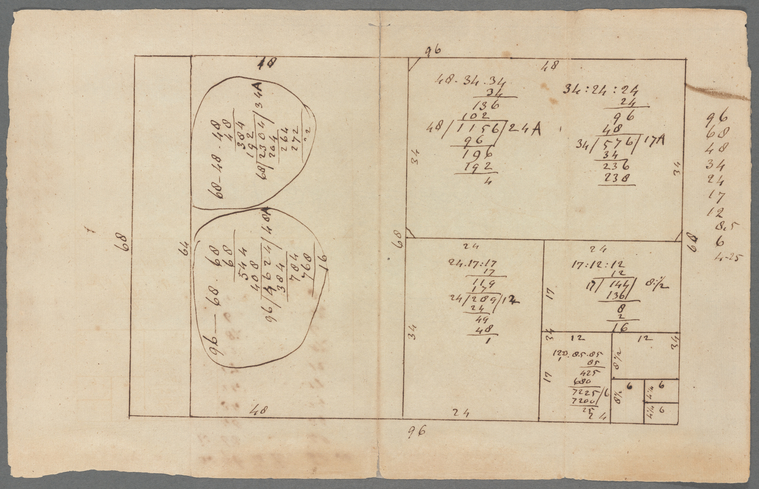 96
48
48
68
64
68 - 48 . 48
48
384
192
68 / 2304 / 34A
204
264
272
96 — 68 . 68
68
544
408
96 / 4624 / 48A
384
784
768
16
48
96
48 . 34 . 34
34
136
102
48 / 1156 / 24 A
96
196
192
4
34 : 24 : 24
24
96
48
34 / 576 / 17A
34
236
238
34
34
68
68
24
24 . 17 : 17
17
119
17
24 / 289 / 12
24
49
48
1
34
24
24
17 : 12 : 12
12
17 / 144 / 8 1/2
136
8
2
16
17
34
12
12
120 . 85 . 85
85
425
680
7225 / 6
7200
25
24
17
8 1/2
34
8 1/2
6
4 1/4
6
4 1/4
6
96
68
48
34
24
17
12
8.5
6
4.25